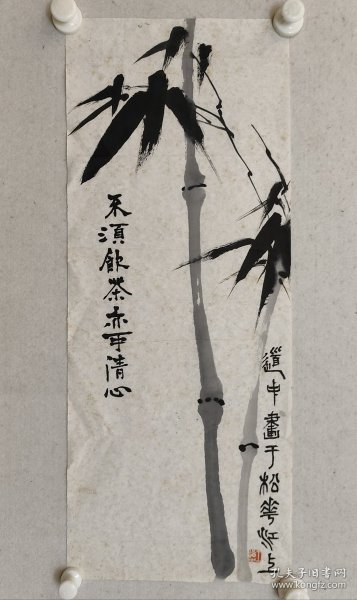 不须飲茶亦可清心
道中畫于松花江上
孔夫子旧书网